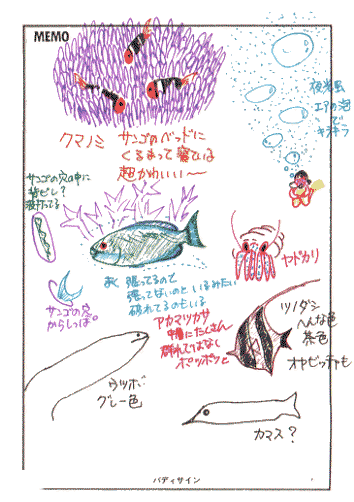 MEMO
夜光虫
エアの泡
で
キラキラ
クマノミ
サンゴのベッドに
くるまって寝ている
超かわいい〜
サンゴの穴の中に
ヤドカリ
あく 張ってるので
張ってないのと いるみたい
破れてるのもいる
サンゴの穴
からしっぽ。
アカマツカサ
中層にたくさん
群れてはなし
ポツポツと
ツノダシ
へんな色
茶色
オヤビッチャも
ウツボ
グレー色
カマス?
バディサイン